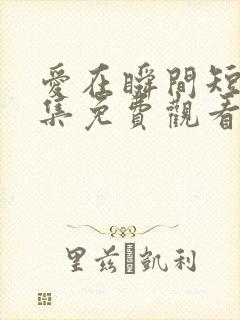 愛在瞬間短
集免費觀看
里兹 凱利